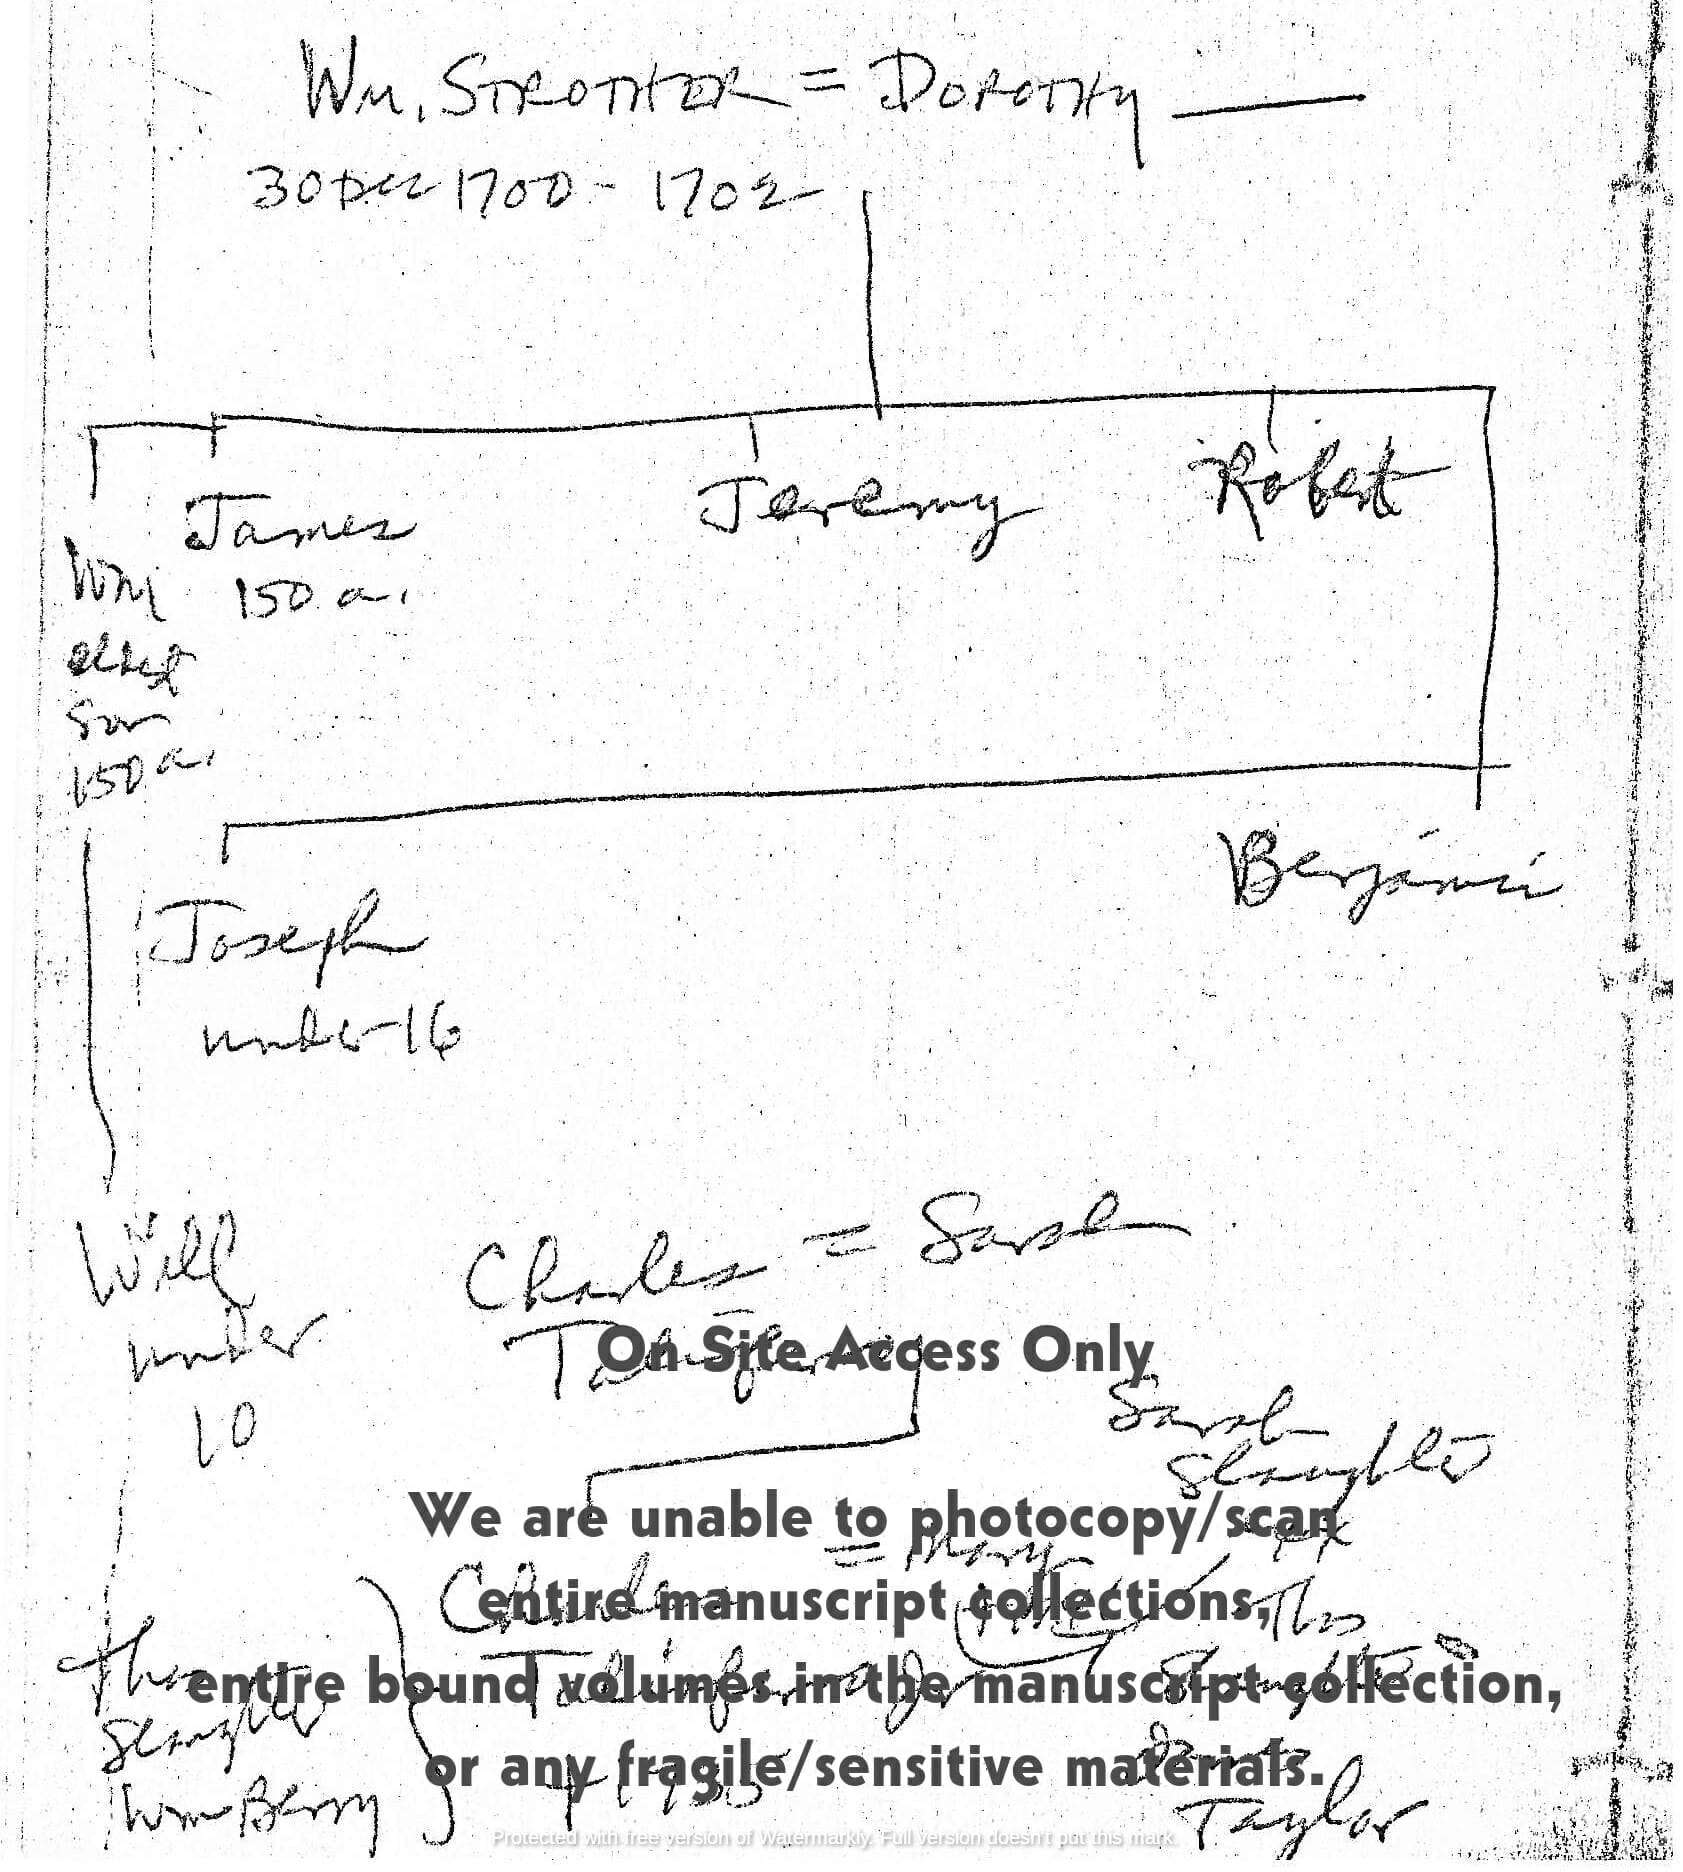 Wm. STROTHER = DOROTHY
30 Dec 1700 - 1702
James Jeremy Robert
150 a.
Wm
eldest
son
150 a.
Benjamin
Joseph
under 16
Charles = Sarah
Will
under
10
On Site Access Only
Sarah
Slaughter
We are unable to photocopy/scan
= Mary
entire manuscript collections,
Charles
Thos
entire bound volumes in the manuscript collection,
Taliaferro Jr
Slaughter
Slaughter
or any fragile/sensitive materials.
Wm Berry
Taylor
Protected with free version of Watermarkly. Full version doesn't put this mark.